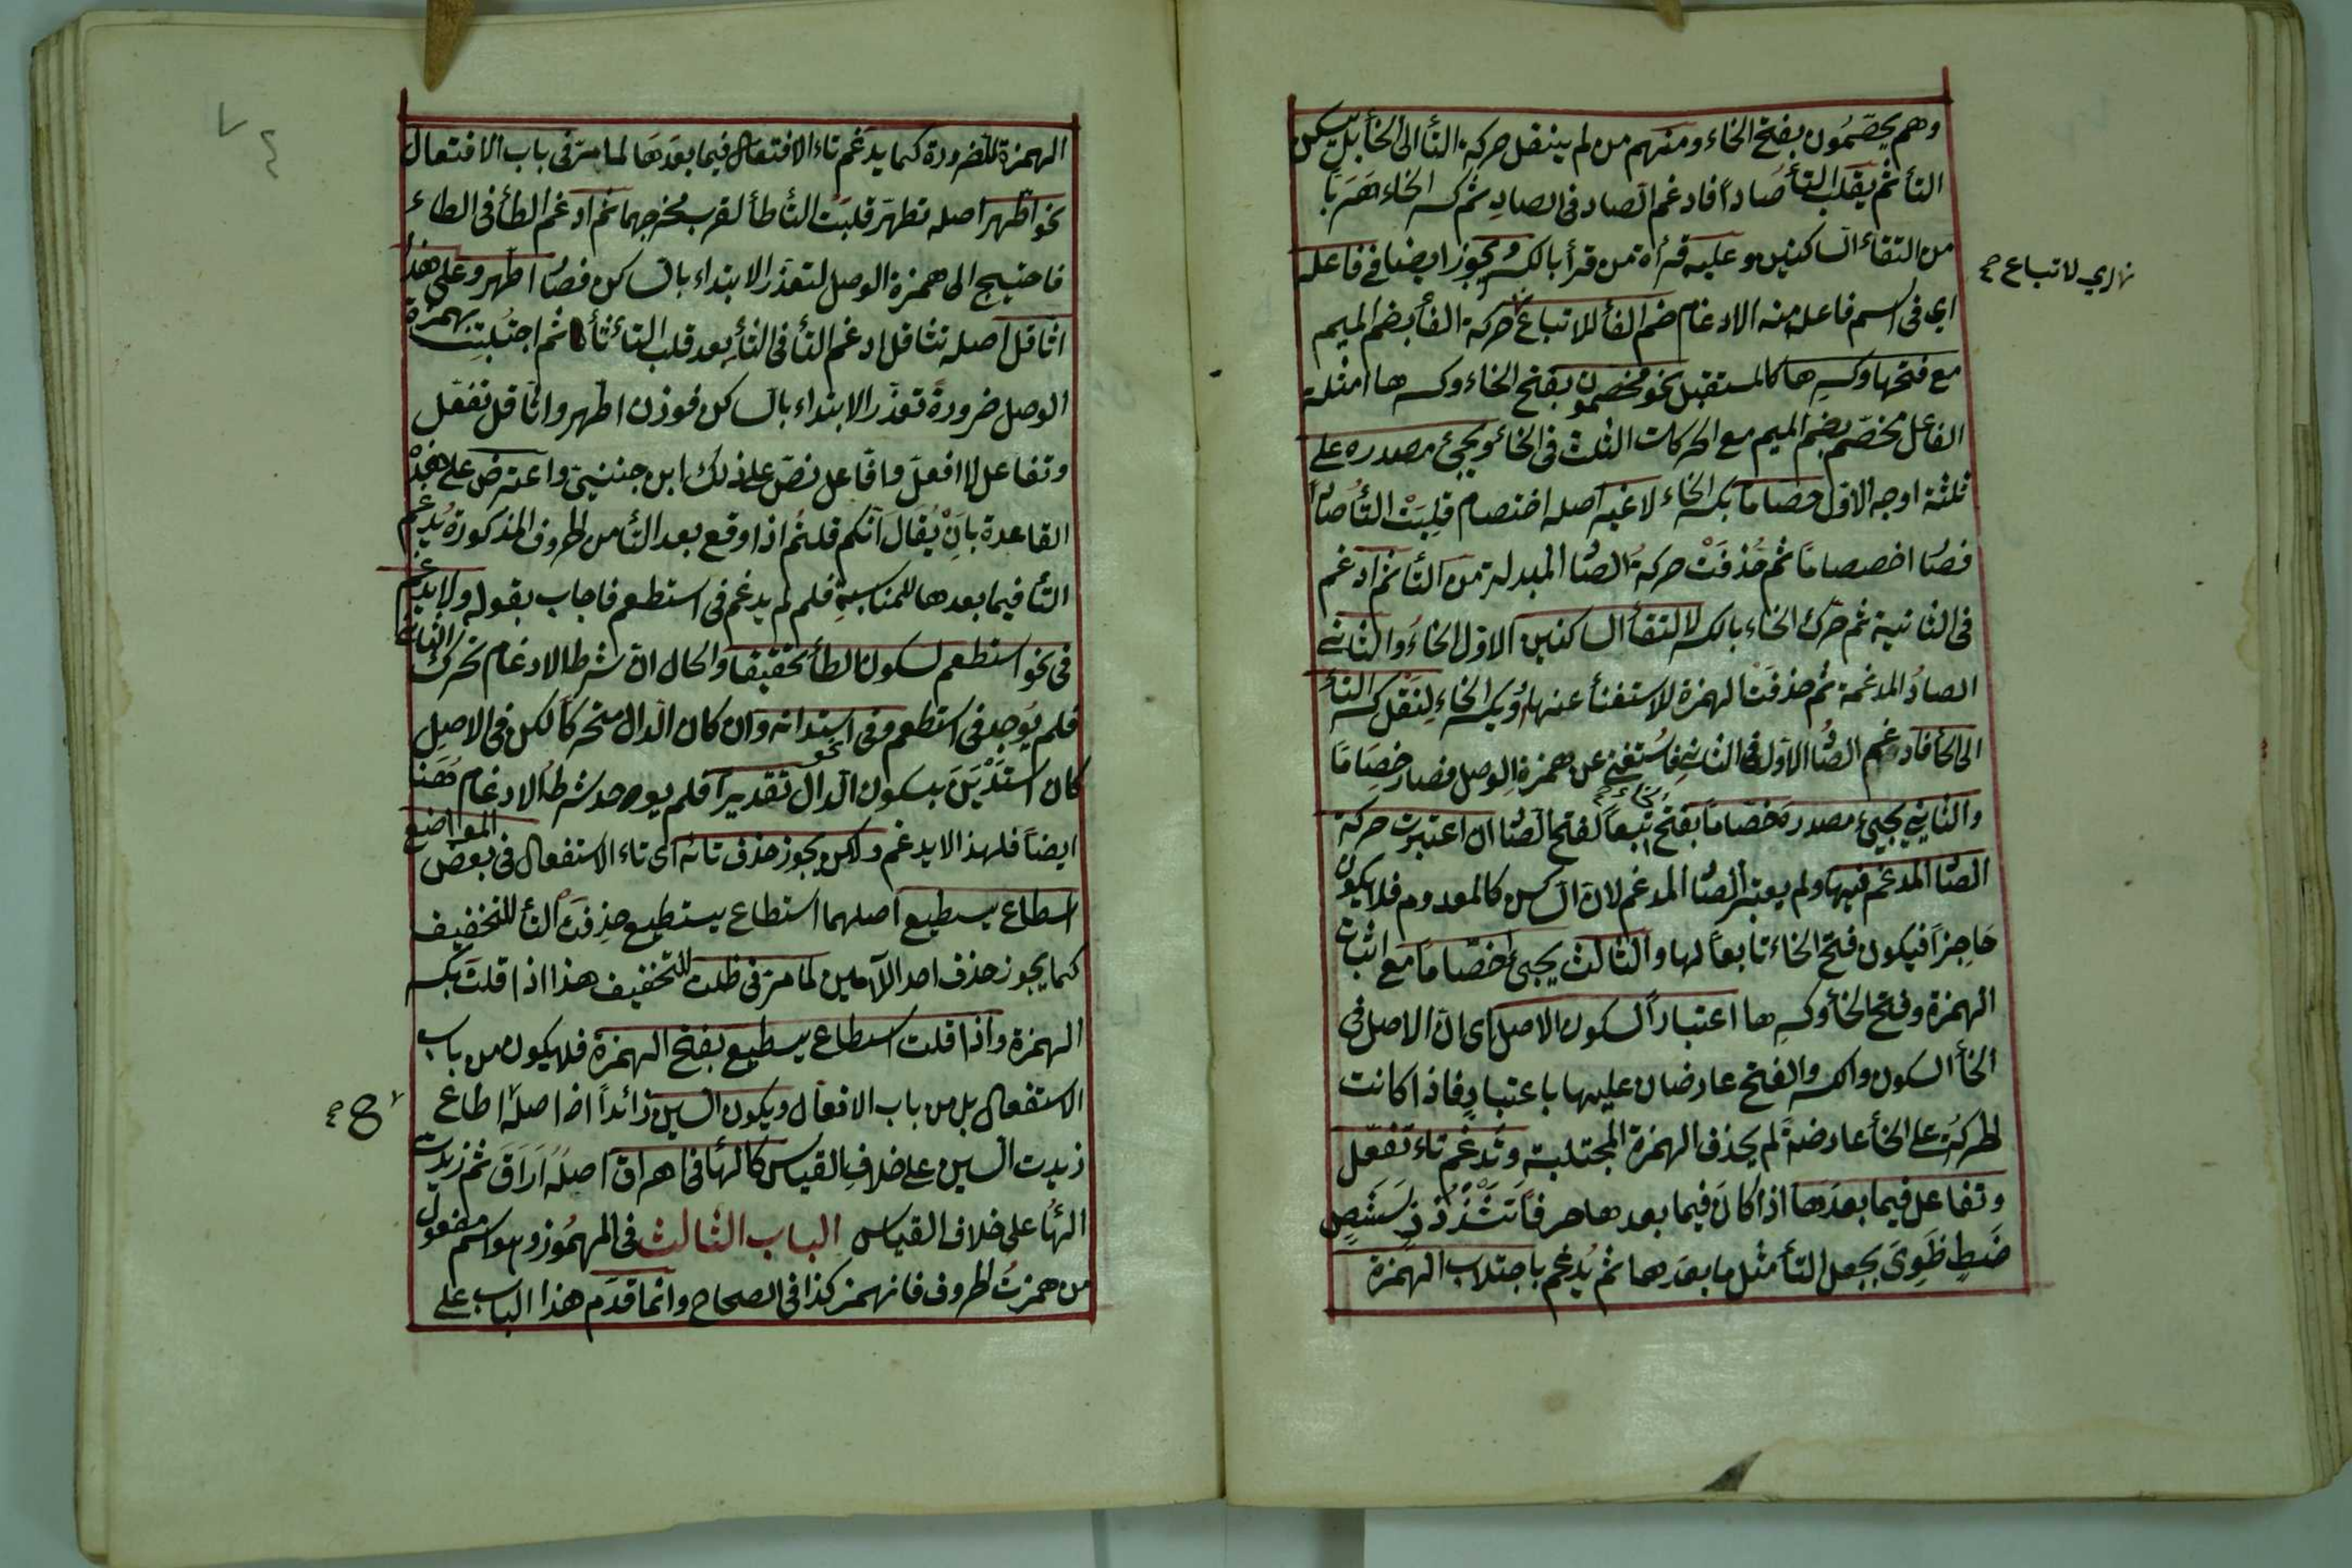 وهم يخصّمون بفتح الخاء ومنهم من لم ينقل حركة التأ الى الخأ بل يسكن
التأ ثم يقلب التأ صاداً فادغم الصاد فى الصادِ ثم كسر الخاء هَرَباً
من التقاء الساكنين وعليه قرأة من قرأ بالكسر ويجوز ايضا فى فاعله
اى فى اسم فاعل منه الادغام ضم الفأ للاتباع حركة الفأ بضم الميم
مع فتحها وكسرِها كالمستقبل نحو مخصمون بفتح الخاء وكسرها امثلة
الفاعل مخصّم بضم الميم مع الحركات الثلث فى الخأ ويجئ مصدره على
ثلثة اوجه الاول خصاما بكسر الخاء لا غير اصله اختصام قلِبَتْ التأ صاً
فصا اخصصاماً ثم حُذفَتْ حركةُ الصا المبدلة من التأ ثم ادغم
فى الثانية ثم حرك الخاء بالكسر لالتقأ الساكنين الاول الخاءُ والثانى
الصادُ المدغمة ثم حذفت الهمزة للاستغنأ عنها ويكسر الخاء لِنَقْل كسر التأ
الى الخأ فادغم الصا الاول فى الثانى فاستغنى عن همزة الوصل فصار خِصِاماً
والثانى يجيئ مصدره خصّاماً بفتح تبعاً لفتح الصا ان اعتبرت حركة
الصا المدغم فيها ولم يعتبر الصا المدغم لان الساكن كالمعدوم فلا يكون
حَاجِزاً فيكون فتح الخاء تابعاً لها والثالث يجئ اخصّاماً مع اثبات
الهمزة وفتح الخأ وكسرِها اعتباراً لسكون الاصل اى ان الاصل فى
الخأ السكون والكسر والفتح عارضان عليها باعتبارٍ فاذا كانت
الحركة على الخأ عارضةً لم يحذف الهمزة المجتلبة وتدغم تاء تفعّل
وتفاعل فيما بعدَها اذا كان فيما بعدها حرفاً تَثَدْذُزِسَشَصِ
ضَطِظَوِىَ بجعل التأ مثل ما بعدَها ثم يُدغم باجتلاب الهمزة
نهارى لاتباع صح
الهمزة للضرورة كما يدغم تاء الافتعال فيما بعدَهَا لما مرّ فى باب الافتعال
نحو اطّهر اصله تطهّر قلبَت التأ طأ لقرب مخرجهما ثم ادغم الطأ فى الطاء
فاحتيج الى همزة الوصل لتعذر الابتداء بالساكن فصا اطّهر وعلى هذا
اثّاقل اصله تثاقل ادغم التأ فى الثأ بعد قلب التاء ثأ ثم اجتُلبت بهمزة
الوصل ضرورةَ تعذّر الابتداء بالساكن فوزن اطّهر واثّاقل تفعّل
وتفاعل لا افعلّ وافّاعل نصّ على ذلك ابن جنى واعترض على هذه
القاعدة بانْ يُقَال انكم قلتُم اذا وقع بعد التأ من الحروف المذكورة يُدغم
التأ فيما بعدها للمناسبةِ فلم لم يدغم فى استطعم فاجاب بقوله ولا يدغم
فى نحو استطعم لسكون الطأ تحقيقا والحال ان شرط الادغام تحرك الثانى
فلم يُوجد فى استطعم وفى استدانه وان كان الدال متحركاً لكن فى الاصل
كان استَدْيَنَ بسكون الدال تقديراً فلم يوجد شرط الادغام هَهنا
نحو
ايضاً فلهذا لا يدغم ولكن يجوز حذف تائه اى تاء الاستفعال فى بعض المواضع
اسطاع يسطيع اصلهما استطاع يستطيع حذِفتْ التأ للتخفيف
كما يجوز حذف احد اللامين لما مرّ فى ظلت للتخفيف هذا اذا قلتَ بكسر
الهمزة واذا قلت اسطاع يسطيع بفتح الهمزة فلا يكون من باب
الاستفعال بل من باب الافعال ويكون السين زائداً اذ اصله اطاع
زيدت السين على خلافِ القياس كالهأ فى اهراق اصلُهُ اَرَاقَ ثم زيدت
الهأ على خلاف القياس الباب الثالث فى المهمُوز وهو اسم مفعول
من همزتُ الحروف فانهمز كذا فى الصحاح وانما قدّم هذا الباب على